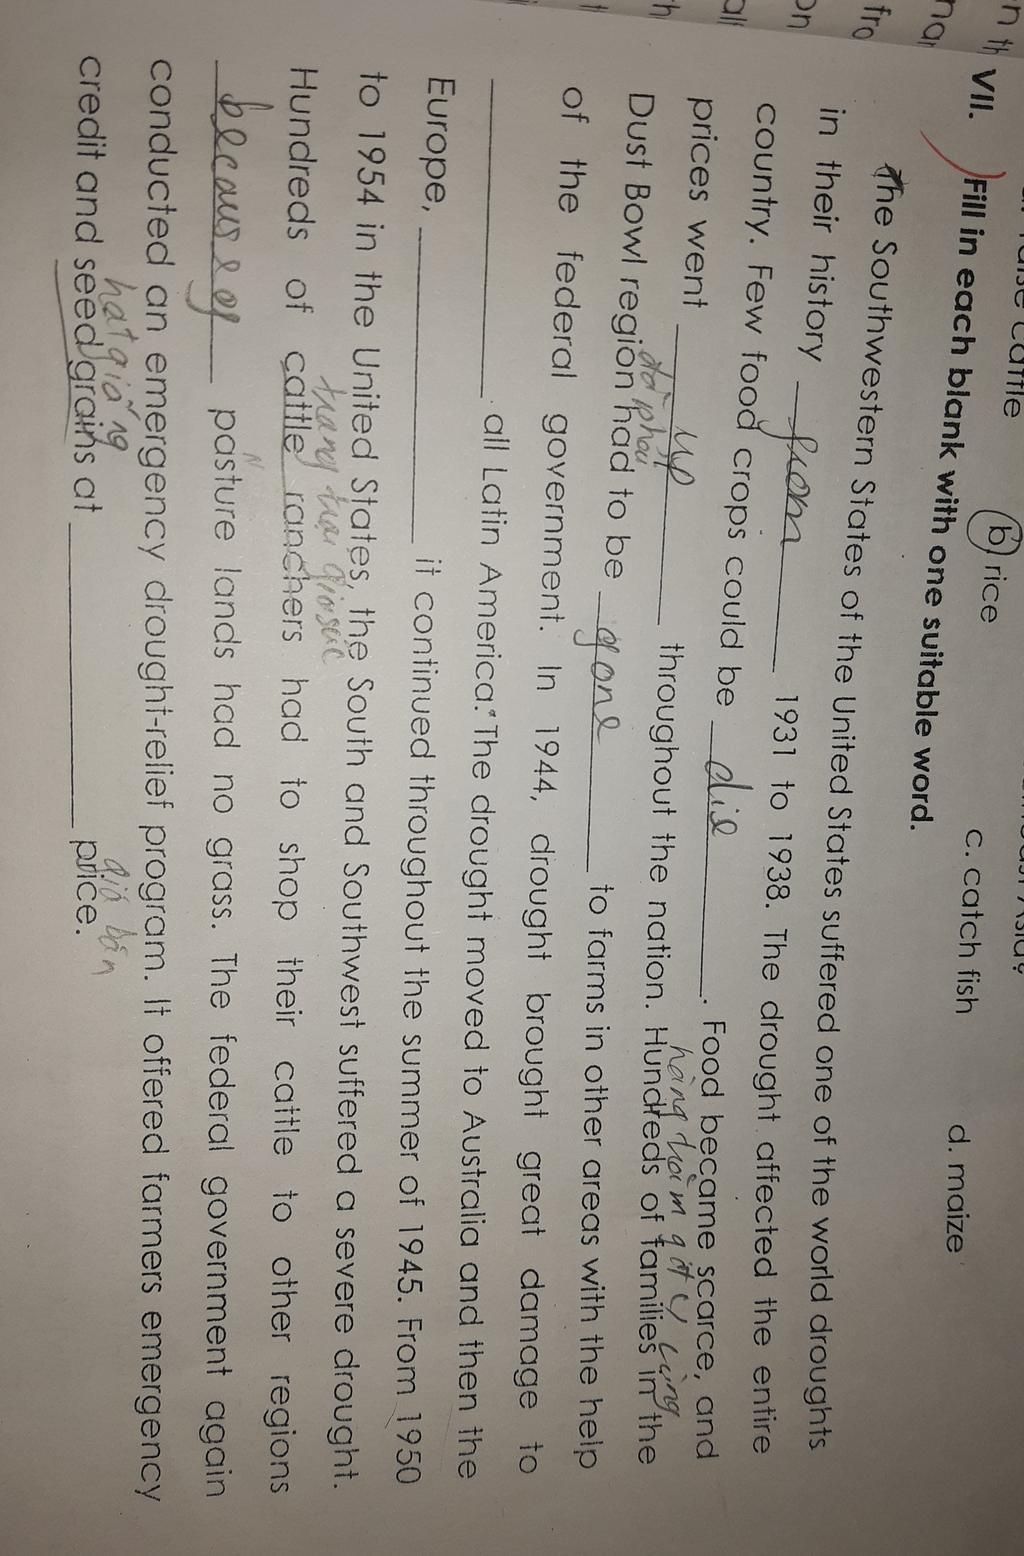 b rice c. catch fish d. maize
VII. Fill in each blank with one suitable word.
The Southwestern States of the United States suffered one of the world droughts
in their history from 1931 to 1938. The drought affected the entire
country. Few food crops could be die. Food became scarce, and
prices went up throughout the nation. Hundreds of families in the
Dust Bowl region had to be gone to farms in other areas with the help
of the federal government. In 1944, drought brought great damage to
all Latin America. The drought moved to Australia and then the
Europe, it continued throughout the summer of 1945. From 1950
to 1954 in the United States, the South and Southwest suffered a severe drought.
trang trại gia súc
Hundreds of cattle ranchers had to shop their cattle to other regions
because of pasture lands had no grass. The federal government again
conducted an emergency drought-relief program. It offered farmers emergency
hạt giống giá bán
credit and seed grains at price.